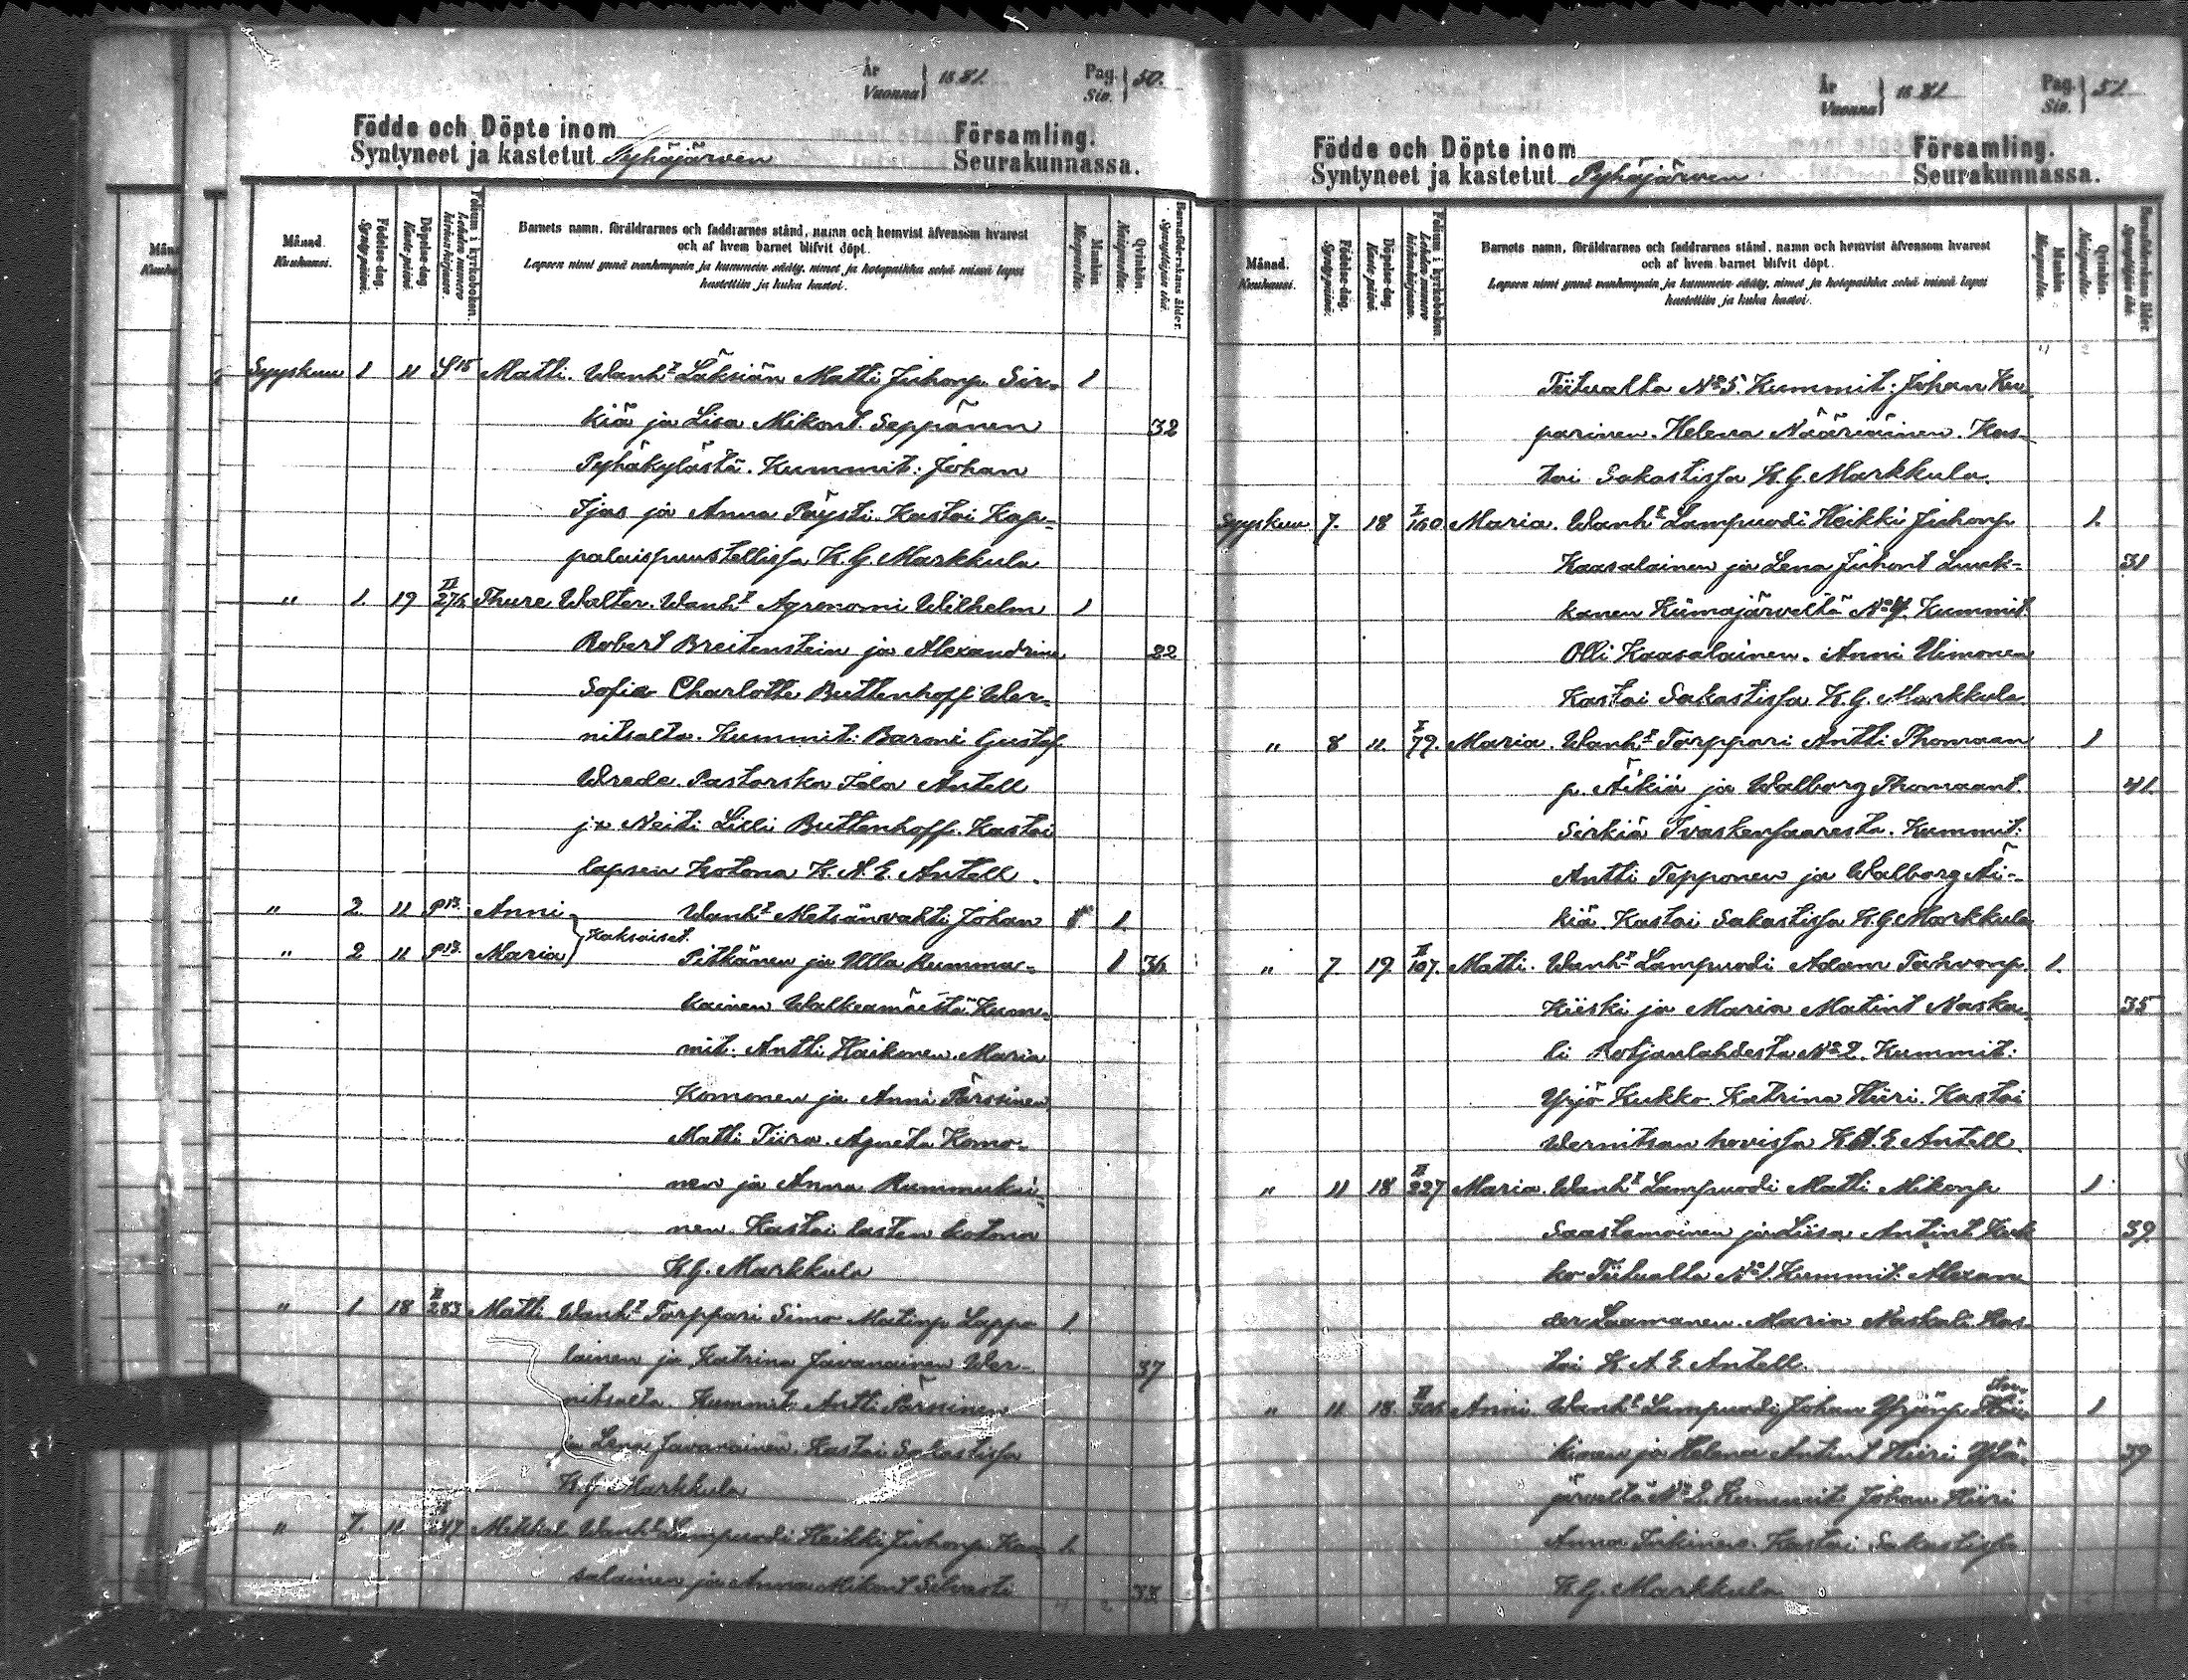 År
Vuonna } 1881. Pag.
Siv. } 50.
Födde och Döpte inom Församling.
Syntyneet ja kastetut Pyhäjärven Seurakunnassa.
Månad.
Kuukausi.
Födelse-dag.
Syntypäivä.
Döpelse-dag.
Kaste-päivä.
Folium i kyrkoboken.
Lehden numero kirkonkirjassa.
Barnets namn, föräldrarnes och faddrarnes stånd, namn och hemvist äfvensom hvarest
och af hvem barnet blifvit döpt.
Lapsen nimi ynnä vanhempain ja kummein sääty, nimet ja kotopaikka sekä missä lapsi
kastettiin ja kuka kastoi.
Mankön.
Miespuolia.
Qvinkön.
Naispuolia.
Barnaföderskans ålder.
Synnyttäjän ikä.
Syyskuu 1 11 S 15 Matti. Wanht Läksiän Matti Juhonp. Sir- 1
kiä ja Lisa Mikont. Seppänen 32
Pyhäkylästä. Kummit: Johan
Ijas ja Anna Päysti. Kastoi Kap-
palaispuustellissa K. G. Markkula
" 1. 19 II 276 Thure Walter. Wanht Agronomi Wilhelm 1
Robert Breitenstein ja Alexandrina 22
Sofia Charlotte Buttenhoff Wer-
nitsalta. Kummit: Baroni Gustaf
Wrede. Pastorska Ida Antell
ja Neiti Lilli Buttenhoff. Kastoi
lapsen kotona K. A. E. Antell.
" 2. 11 P 13. Anni Wanht Metsänvahti Johan 1.
Kaksoiset.
" 2 11 P 13. Maria Pitkänen ja Ulla Rummu- 1 36
kainen Walkeamäestä Kum-
mit: Antti Haikonen. Maria
Komonen ja Anni Pärssinen
Matti Tiira. Agneta Komo-
nen ja Anna Rummukai-
nen. Kastoi lasten kotona
K. G. Markkula
" 1. 18 II 283 Matti Wanht Torppari Simo Matinp Lappa- 1.
lainen ja Katrina Javanainen Wer- 37
nitsalta. Kummit Antti Pärssinen
ja Lena Javanainen. Kastoi Sakastissa
K. G. Markkula
" 7. 11 II 247 Mikkel Wanht Lampuodi Heikki Juhonp. Kaa- 1.
salainen ja Anna Mikont Silvasti 38
År
Vuonna } 1881 Pag.
Siv. } 51
Födde och Döpte inom Församling.
Syntyneet ja kastetut Pyhäjärven Seurakunnassa.
Månad.
Kuukausi.
Födelse-dag.
Syntypäivä.
Döpelse-dag.
Kaste-päivä.
Folium i kyrkoboken.
Lehden numero kirkonkirjassa.
Barnets namn, föräldrarnes och faddrarnes stånd, namn och hemvist äfvensom hvarest
och af hvem barnet blifvit döpt.
Lapsen nimi ynnä vanhempain ja kummein sääty, nimet ja kotopaikka sekä missä lapsi
kastettiin ja kuka kastoi.
Mankön.
Miespuolia.
Qvinkön.
Naispuolia.
Barnaföderskans ålder.
Synnyttäjän ikä.
Tiitualta No 5. Kummit: Johan Ku-
parinen. Helena Nääriäinen. Kas-
toi Sakastissa K. G. Markkula.
Syyskuu 7. 18 I 160 Maria. Wanht Lampuodi Heikki Juhonp 1.
Kaasalainen ja Lena Juhont Luuk- 31
kanen Kiimajärveltä No 4. Kummit.
Olli Kaasalainen. Anni Uimonen
Kastoi Sakastissa K. G. Markkula
" 8 11 I 79. Maria. Wanht Torppari Antti Thomaan 1
p. Äikiä ja Walborg Thomaant. 41.
Sirkiä Ivaskensaaresta. Kummit:
Antti Tepponen ja Walborg Äi-
kiä. Kastoi Sakastissa K. G. Markkula
" 7 19. II 107. Matti. Wanht Lampuodi Adam Tahvonp. 1.
Kiiski ja Maria Matint Naska- 35
li Rotjanlahdesta No 2. Kummit:
Yrjö Kukko. Katrina Hiiri. Kastoi
Wernitsan hovissa K. A. E. Antell.
" 11 18 II 227 Maria. Wanht Lampuodi Matti Mikonp 1
Saastamoinen ja Liisa Antint Kuk- 39
ko Tiitualta No 1. Kummit: Alexan-
der Laamanen. Maria Naskali. Kas-
toi K A E Antell.
" 11 18. II 306 Anni. Wanht Lampuodi Johan Yrjönp 1
ja Helena Antint Hiiri Ylä- 39
järveltä No 2. Kummit Johan Hiiri
Anna Kastoi Sakastissa
K. G. Markkula